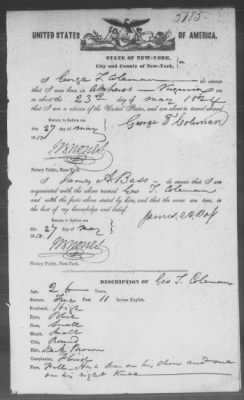 3185.
UNITED STATES OF AMERICA.
STATE OF NEW-YORK,
City and County of New-York, } ss.
I George T. Coleman do swear
that I was born in Amherst – Virginia on
or about the 23d day of May 1824
that I am a citizen of the United States, and am about to travel abroad.
Sworn to before me
this 27 day of May
1850.
George T. Coleman
Notary Public, New-York.
I James A. Bass do swear that I am
acquainted with the above named Geo T. Coleman
and with the facts above stated by him, and that the same are true, to
the best of my knowledge and belief.
Sworn to before me
this 27 day of May
1850.
James A. Bass
Notary Public, New-York.
DESCRIPTION OF Geo T. Coleman
Age, 26 Years,
Stature, Five Feet 11 Inches English.
Forehead, High
Eyes, Blue
Nose, Small
Mouth, Small
Chin, Round
Hair, Dark Brown
Complexion, Florid
Face, Full. Has a scar on his chin and one
on his right Knee